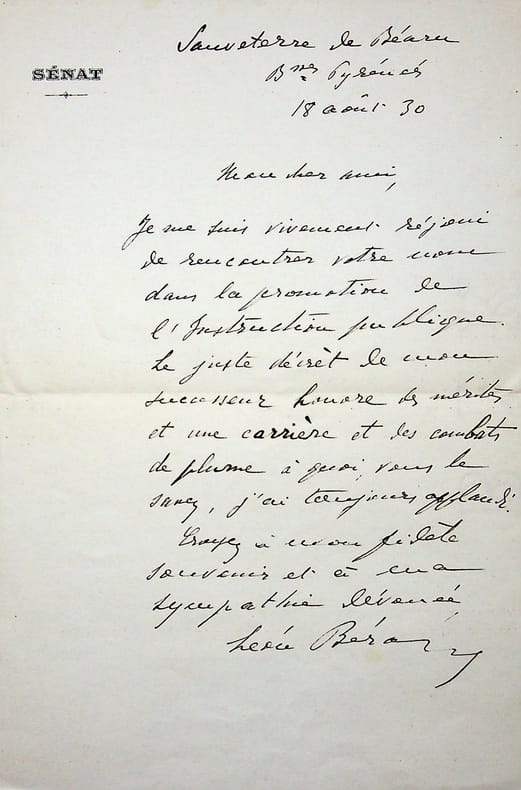 Sauveterre de Béarn
SÉNAT
Bses Pyrénées
18 août 30
Mon cher ami,
Je me suis vivement réjoui
de rencontrer votre nom
dans la promotion de
l'Instruction publique.
Le juste décret de mon
successeur honore des mérites
et une carrière et des combats
de plume à quoi, vous le
savez, j'ai toujours applaudi.
Croyez à mon fidèle
souvenir et à ma
sympathie dévouée
Léon Bérard